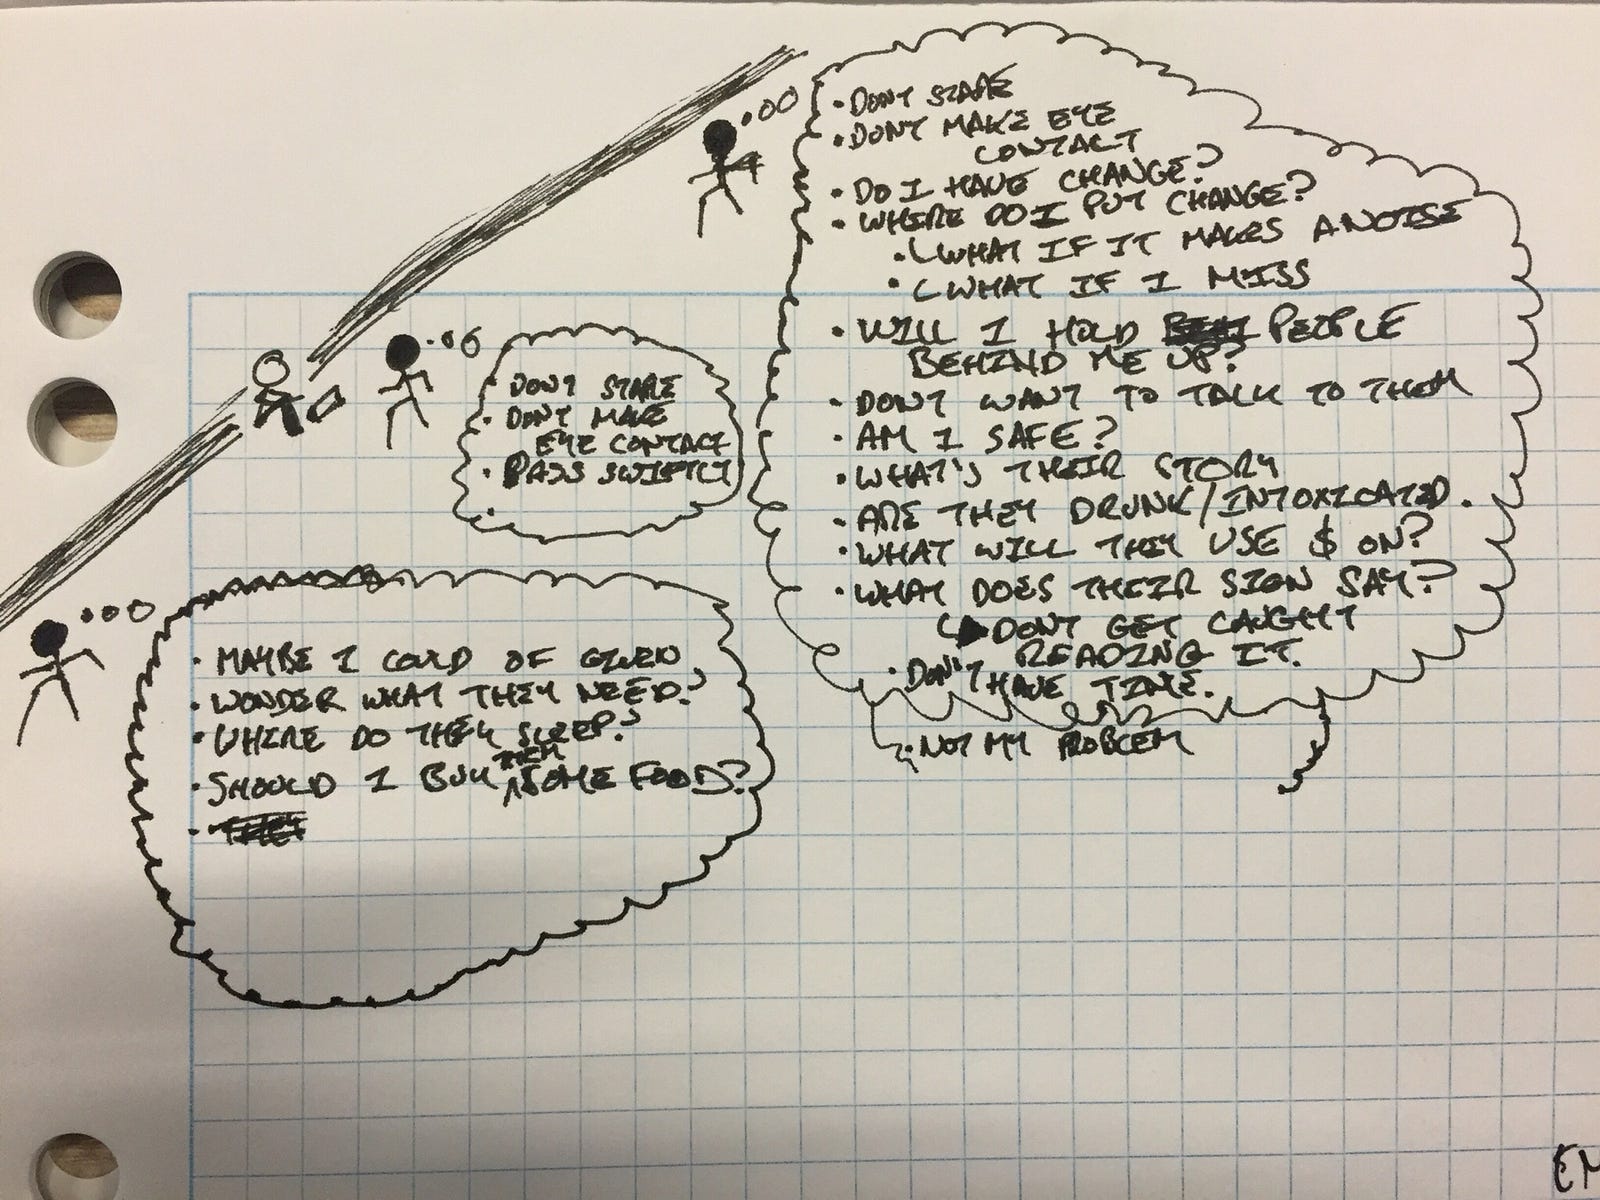 • DONT STARE
• DONT MAKE EYE
CONTACT
• DO I HAVE CHANGE?
• WHERE DO I PUT CHANGE?
• WHAT IF IT MAKES A NOISE
• WHAT IF I MISS
• WILL I HOLD PEOPLE
BEHIND ME UP?
• DONT WANT TO TALK TO THEM
• AM I SAFE?
• WHAT'S THEIR STORY
• ARE THEY DRUNK/INTOXICATED.
• WHAT WILL THEY USE $ ON?
• WHAT DOES THEIR SIGN SAY?
DONT GET CAUGHT
READING IT.
• DON'T HAVE TIME.
• NOT MY PROBLEM
• DONT STARE
• DONT MAKE
EYE CONTACT
• PASS SWIFTLY
•
• MAYBE I COULD OF GIVEN
• WONDER WHAT THEY NEED?
• WHERE DO THEY SLEEP?
• SHOULD I BUY THEM SOME FOOD?
•
EM